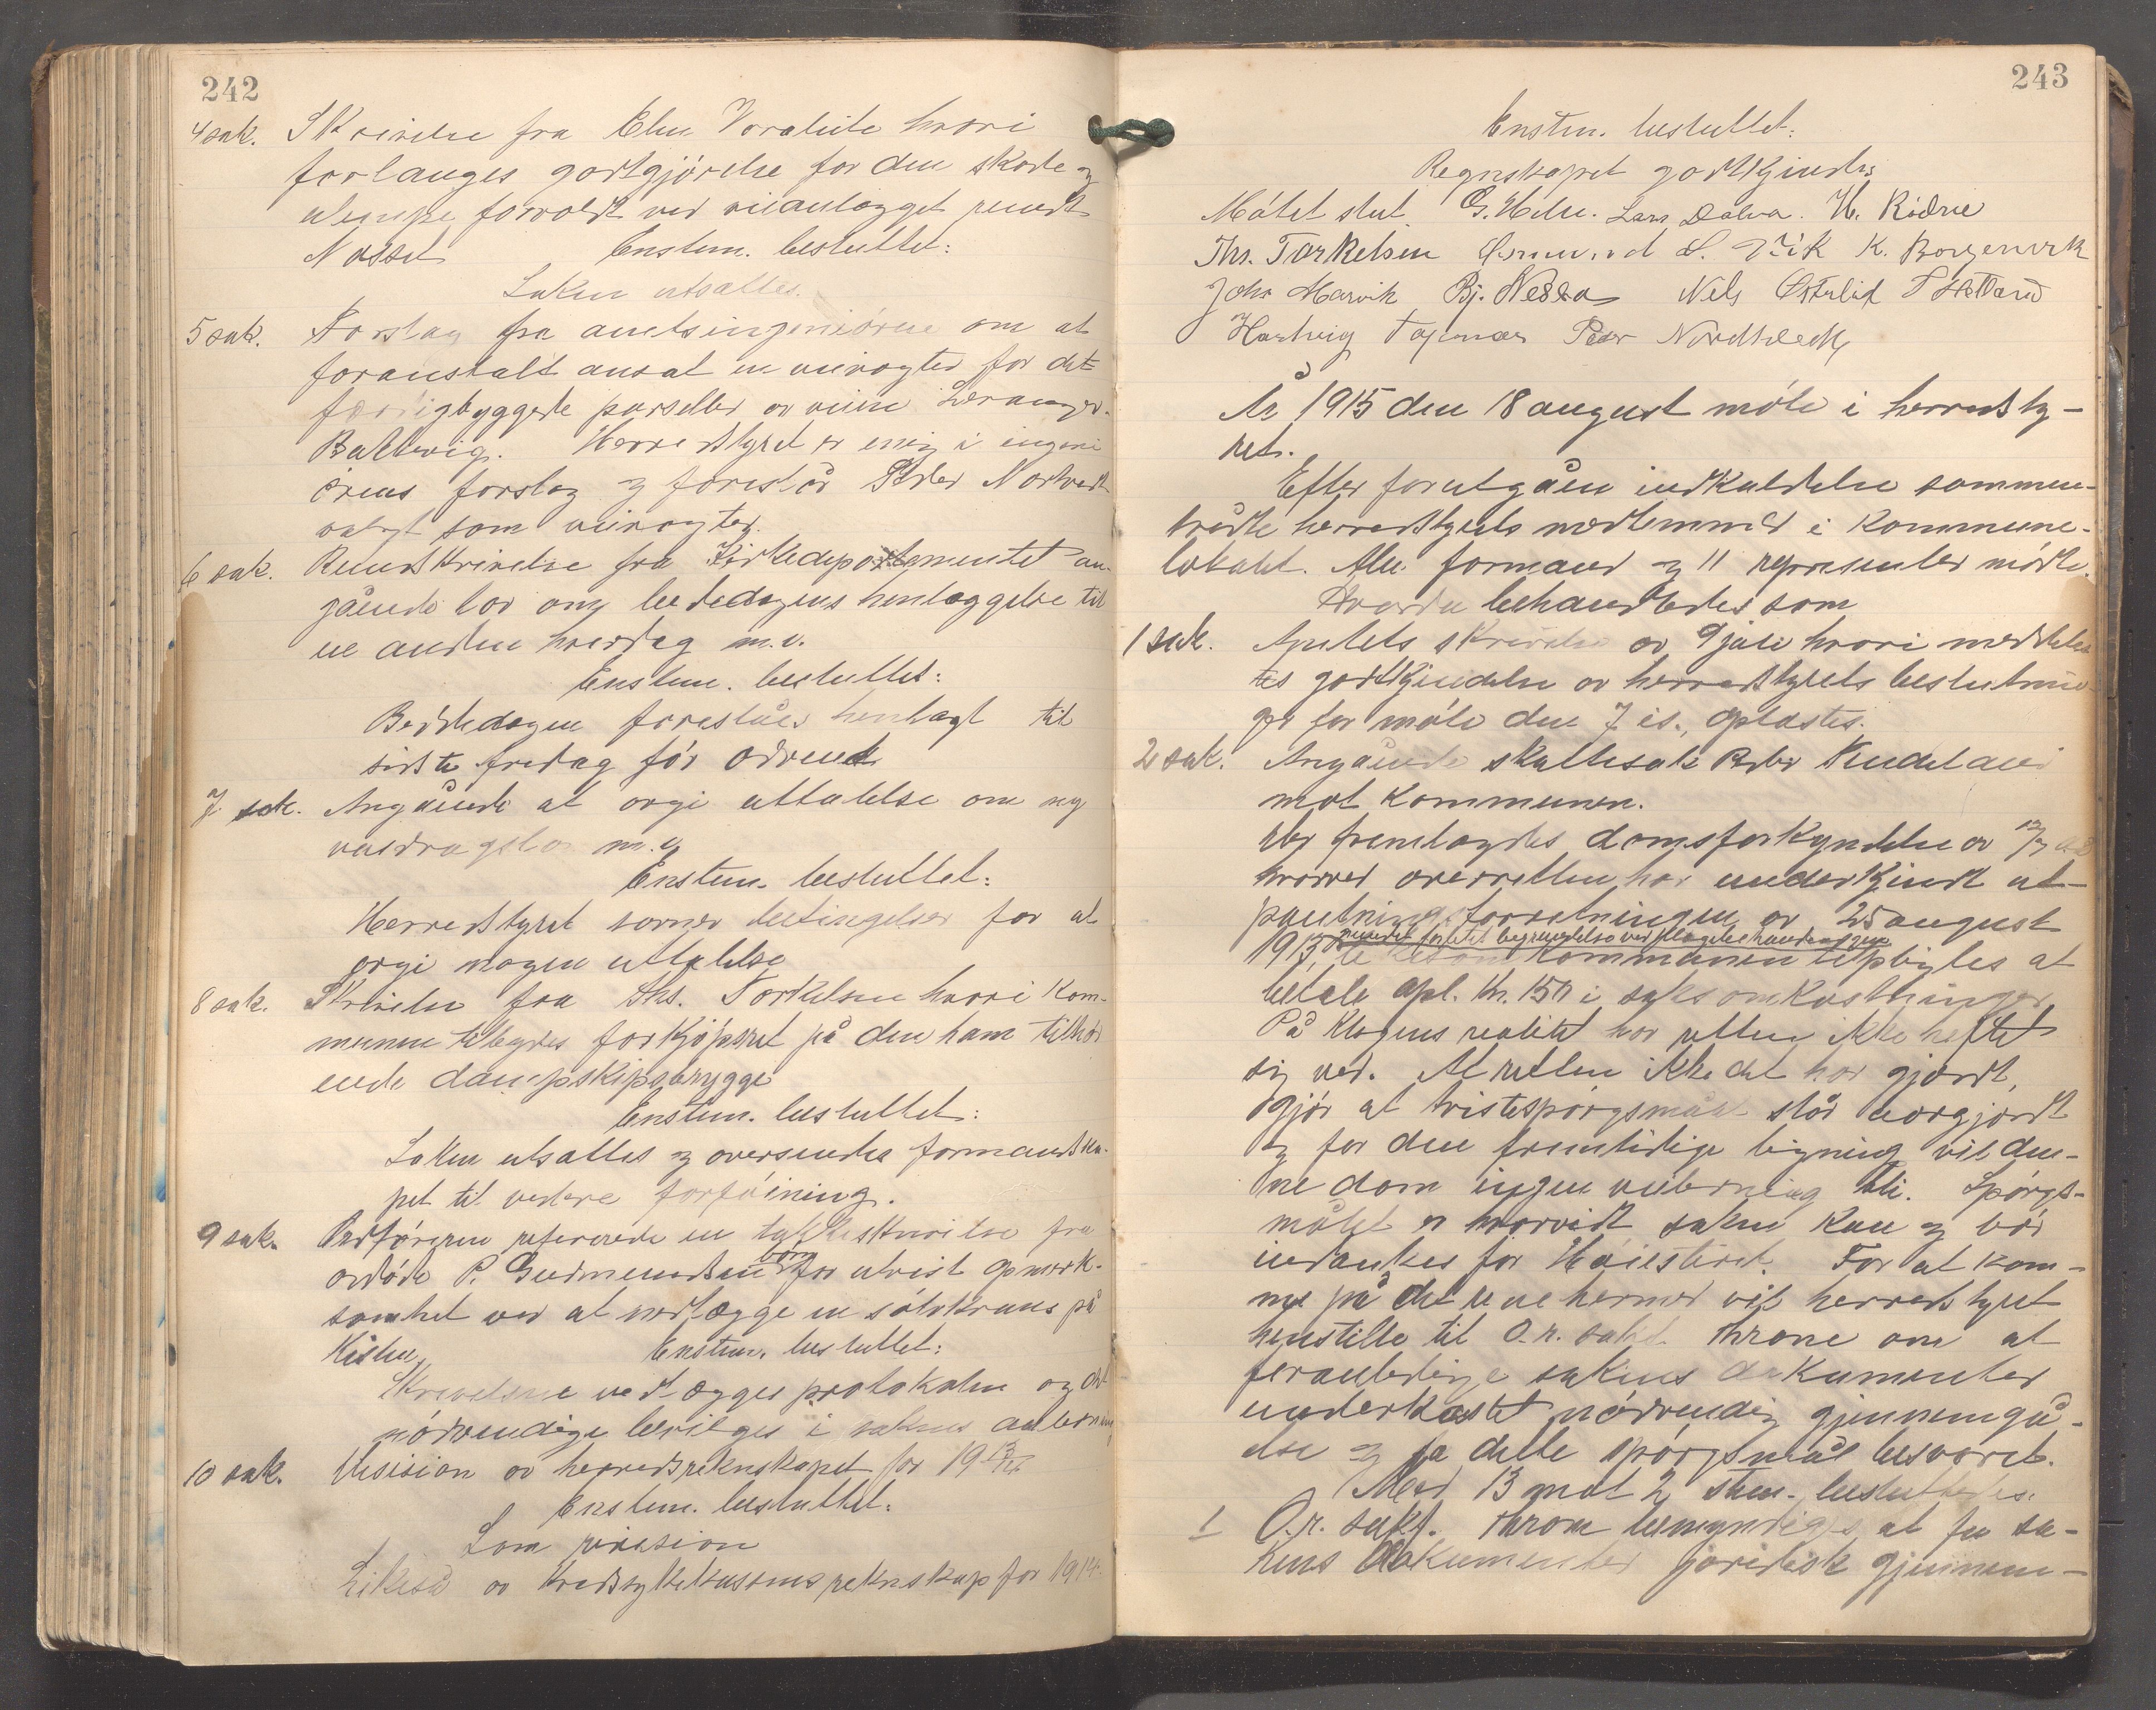 242
4 sak. Skrivelse fra Elen Voralide hvori
forlanges godtgjörelse for den skade og
ulempe forvoldt ved veianlægget
Enstem. besluttet:
Saken utsættes.
5 sak. Forslag fra amtsingeniörene om at
foranstalt ansat en veivogter for det
færdigbyggede parseller av veien
Herredstyret er enig i ingeni
örens forslag og foreslår Peder
valgt som veivogter.
6 sak. Rundskrivelse fra Kirkedepartementet an-
gående lov om bededagens henlæggelse til
en anden hverdag m.v.
Enstem. besluttet:
Bededagen foreslåes henlagt til
sidste fredag för advent
7. sak. Angående at avgi uttalelse om ny
vasdragslov m.v.
Enstem. besluttet:
Herredstyret savner betingelser for at
avgi nogen uttalelse
8 sak. Skrivelse fra Ths. Torkelsen hvori kom-
munen tilbydes forkjöpsret på den ham tilhör
ende dampskipsbrygge
Enstem. besluttet:
Saken utsættes og oversendes formandska-
pet til videre forföining.
9 sak. Ordföreren refererede en takkeskrivelse fra
avdöde P. Gudmundsens barn for utvist opmerk-
somhet ved at nedlægge en sölvkrans på
Kisten. Enstem. besluttet:
Skrivelsen vedlægges protokolen og det
nödvendige bevilges i sakens anledning
10 sak. Decision av herredsregnskapet for 1913/14
Enstem. besluttet:
Som revision
Likeså av Kredssykekassens regnskap for 1914.
243
Enstem. besluttet:
Regnskapet godtkjendes
Mötet slut. G. Helse. Lars Dalva. H. Rödne
Ths. Torkelsen L. Vik K. Borgenvik
John Marvik Bj. Nessa Nils Österlid
Hartvig Peder
År 1915 den 18 august möte i herredsty-
ret.
Efter forutgåen indkaldelse sammen-
trådte herredstyrets medlemmer i kommune-
lokalet. Alle formænd og 11 representer mödte.
Hvorda behandledes som
1 sak. Amtets skrivelse av 9 juli hvori meddeles
tes godtkjendelse av herredstyrets beslutnin-
ger for möte den 7 is., oplæstes.
2 sak. Angående skattesak Peder
mot kommunen.
Der fremlagdes domsforkyndelse av
hvorved overretten har underkjendt ut-
pantningsforretningen av 25 august
1913, kommunen tilpligtes at
betale opl. Kr. 150 i saksomkostninger
På klagens realitet har retten ikke heftet
sig ved. At retten ikke det har gjordt,
gjör at tvistespörgsmålet står uavgjordt
og for den fremtidige ligning vil den-
ne dom ingen veiledning bli. Spörgs-
målet er hvorvidt saken kan og bör
indankes for Höiesteret. For at kom-
me på det rene hermed vil herredstyret
henstille til O.r. sakf. Throne om at
foranledige sakens dokumenter
underkastet nödvendig gjennemgå-
else og få dette spörgsmål besvaret.
Med 13 mot 2 stem. besluttedes:
1 O.r. sakf. Throne bemyndiges at få sa-
kens dokumenter juridisk gjennem-